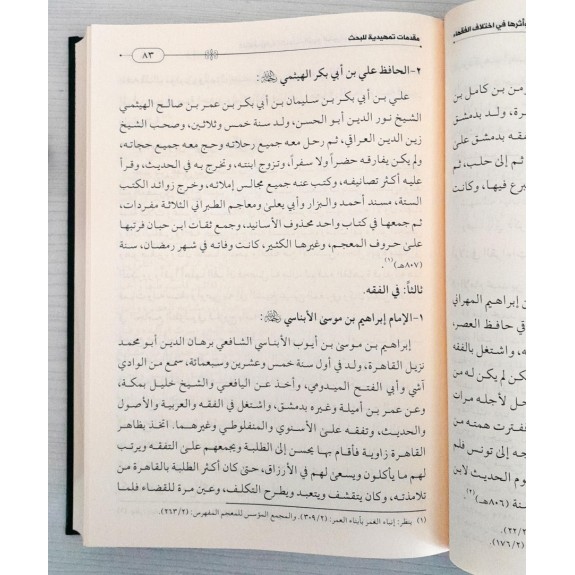 وأثرها في اختلاف الفقهاء
بن كامل بن
رة، ولد بدمشق
فقه بدمشق على
ثم إلى حلب، ثم
برع فيها، وكانت
إبراهيم المهراني
في حافظ العصر،
واشتغل بالفقه
كن لم يكن له من
حل لأجله مرات
ففترت همته من
جه إلى تونس فلم
وم الحديث لابن
سنة (٨٠٦هـ)(٢).
٢٢/٢)
(١٧٦/٢).
مقدمات تمهيدية للبحث
٨٣
٢- الحافظ علي بن أبي بكر الهيثمي رحمه الله:
علي بن أبي بكر بن سليمان بن أبي بكر بن عمر بن صالح الهيثمي
الشيخ نور الدين أبو الحسن، ولد سنة خمس وثلاثين، وصحب الشيخ
زين الدين العراقي، ثم رحل معه جميع رحلاته وحج معه جميع حجاته،
ولم يكن يفارقه حضراً ولا سفراً، وتزوج ابنته، وتخرج به في الحديث، وقرأ
عليه أكثر تصانيفه، وكتب عنه جميع مجالس إملائه، وخرج زوائد الكتب
الستة، مسند أحمد والبزار وأبي يعلى ومعاجم الطبراني الثلاثة مفردات،
ثم جمعها في كتاب واحد محذوف الأسانيد، وجمع ثقات ابن حبان فرتبها
على حروف المعجم، وغيرها الكثير، كانت وفاته في شهر رمضان، سنة
(٨٠٧هـ)(١).
ثالثاً: في الفقه.
١- الإمام إبراهيم بن موسى الأبناسي رحمه الله:
إبراهيم بن موسى بن أيوب الأبناسي الشافعي برهان الدين أبو محمد
نزيل القاهرة، ولد في أول سنة خمس وعشرين وسبعمائة، سمع من الوادي
آشي وأبي الفتح الميدومي، وأخذ عن اليافعي والشيخ خليل بمكة،
وعن عمر بن أميلة وغيره بدمشق، واشتغل في الفقه والعربية والأصول
والحديث، وتفقه على الأسنوي والمنفلوطي وغيرهما. اتخذ بظاهر
القاهرة زاوية فأقام بها يحسن إلى الطلبة ويجمعهم على التفقه ويرتب
لهم ما يأكلون ويسعى لهم في الأرزاق، حتى كان أكثر الطلبة بالقاهرة من
تلامذته، وكان يتقشف ويتعبد ويطرح التكلف، وعين مرة للقضاء فلما
(١) ينظر: إنباء الغمر بأبناء العمر: (٣٠٩/٢). والمجمع المؤسس للمعجم المفهرس: (٢٦٣/٢).